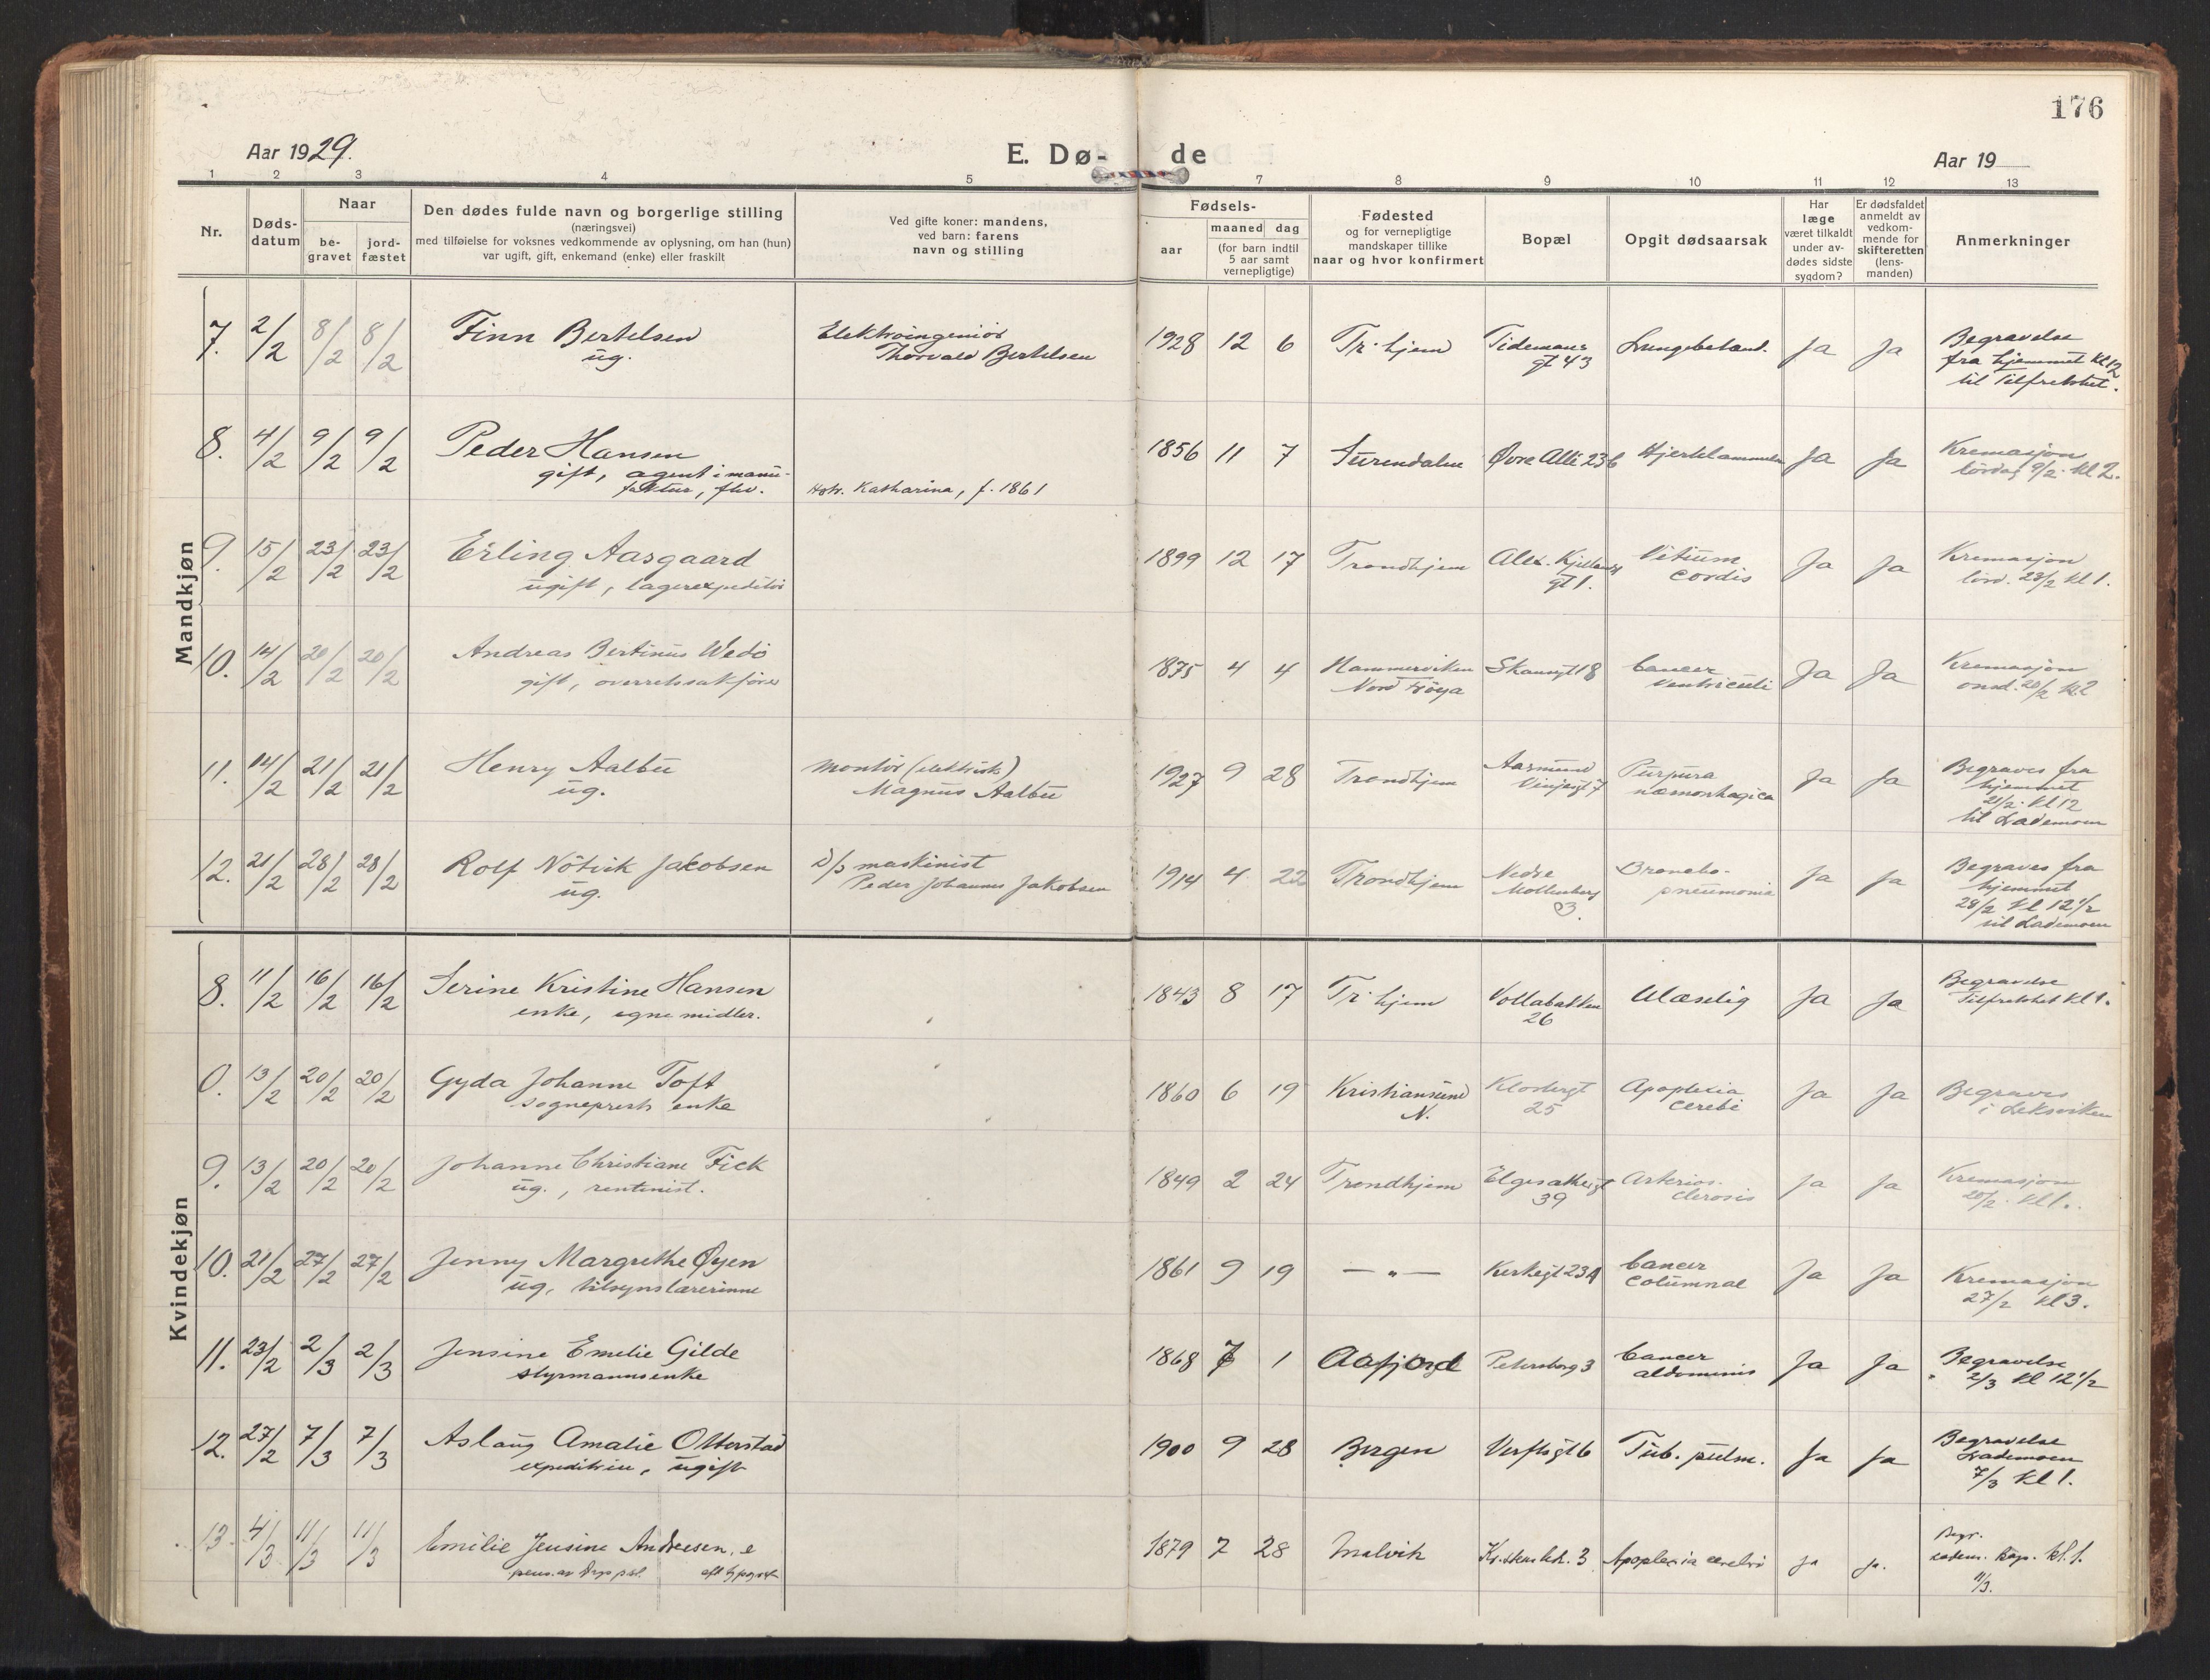 176
Aar 1929.
E. Dø- de
Aar 19
1 2 3 4 5 7 8 9 10 11 12 13
Nr.
Døds-
datum
Naar
be-
gravet
jord-
fæstet
Den dødes fulde navn og borgerlige stilling
(næringsvei)
med tilføielse for voksnes vedkommende av oplysning, om han (hun)
var ugift, gift, enkemand (enke) eller fraskilt
Ved gifte koner: mandens,
ved barn: farens
navn og stilling
Fødsels-
aar
maaned dag
(for barn indtil
5 aar samt
vernepligtige)
Fødested
og for vernepligtige
mandskaper tillike
naar og hvor konfirmert
Bopæl
Opgit dødsaarsak
Har
læge
været tilkaldt
under av-
dødes sidste
sygdom?
Er dødsfaldet
anmeldt av
vedkom-
mende for
skifteretten
(lens-
manden)
Anmerkninger
Mandkjøn
7. 2/2 8/2 8/2 Finn Bertelsen
ug.
Elektroingeniør
Thorvald Bertelsen
1928 12 6 Tr.hjem
Tidemans
gt 43
Lungebetend. Ja Ja
Begravelse
fra hjemmet kl 12
til Tilfredshet.
8. 4/2 9/2 9/2 Peder Hansen
gift, agent i manu-
faktur, fhv.
Hstr. Katharina, f. 1861
1856 11 7 Surendalen Øvre Allé 23b Hjertelammelse Ja Ja
Kremasjon
lørdag 9/2 kl 2.
9. 15/2 23/2 23/2 Erling Aasgaard
ugift, lagerexpeditør
1899 12 17 Trondhjem
Alex. Kjellands
gt 1.
Vitium
cordis
Ja Ja
Kremasjon
lørd. 23/2 kl 1.
10. 14/2 20/2 20/2 Andreas Bertinus Wedø
gift, overretssakfører
1875 4 4
Hammerviken
Nord Frøya
Skansegt 18
Cancer
ventriculi
Ja Ja
Kremasjon
onsd. 20/2 kl. 2
11. 14/2 21/2 21/2 Henry Aalbu
ug.
montør (elektrisk)
Magnus Aalbu
1927 9 28 Trondhjem
Aasmund
Vinjesgt 7
Purpura
hæmorrhagica
Ja Ja
Begraves fra
hjemmet
21/2 kl 12
til Lademoen
12. 21/2 28/2 28/2 Rolf Nötvik Jakobsen
ug.
D/s maskinist
Peder Johannes Jakobsen
1914 4 22 Trondhjem
Nedre
Møllenberg
83.
Broncho-
pneumonia
Ja Ja
Begraves fra
hjemmet
28/2 kl 12 1/2
til Lademoen
Kvindekjøn
8. 11/2 16/2 16/2 Serine Kristine Hansen
enke, egne midler.
1843 8 17 Tr.hjem
Vollabakken
26
Ulæselig Ja Ja
Begravelse
Tilfredshet kl 1.
0. 13/2 20/2 20/2 Gyda Johanne Toft
sogneprests enke
1860 6 19
Kristiansund
N.
Klostergt
25
Apoplexia
cerebi
Ja Ja
Begraves
i Leksviken
9. 13/2 20/2 20/2 Johanne Christiane Fick
ug., rentenist.
1849 2 24 Trondhjem
Elgesætergt
39
Arterios-
clerosis
Ja Ja
Kremasjon
20/2 kl 1.
10. 21/2 27/2 27/2 Jenny Margrethe Øyen
ug. tilsynslærerinne
1861 9 19 — „ — Kirkegt 23A
Cancer
columnae
Ja Ja
Kremasjon
27/2 kl 3.
11. 23/2 2/3 2/3 Jensine Emelie Gilde
styrmannsenke
1868 7 1 Aafjord Petersborg 3
Cancer
abdominis
Ja Ja
Begravelse
2/3 kl 12 1/2
12. 27/2 7/3 7/3 Aslaug Amalie Otterstad
expeditrise, ugift
1900 9 28 Bergen Verftsgt 6 Tub. pulm. Ja Ja
Begravelse
Lademoen
7/3 kl 1.
13. 4/3 11/3 11/3 Emilie Jensine Andresen, e
1879 7 28 Malvik 3 Apoplexia cerebri Ja Ja.
Begr.
Ladem. kap. kl. 1.
11/3.